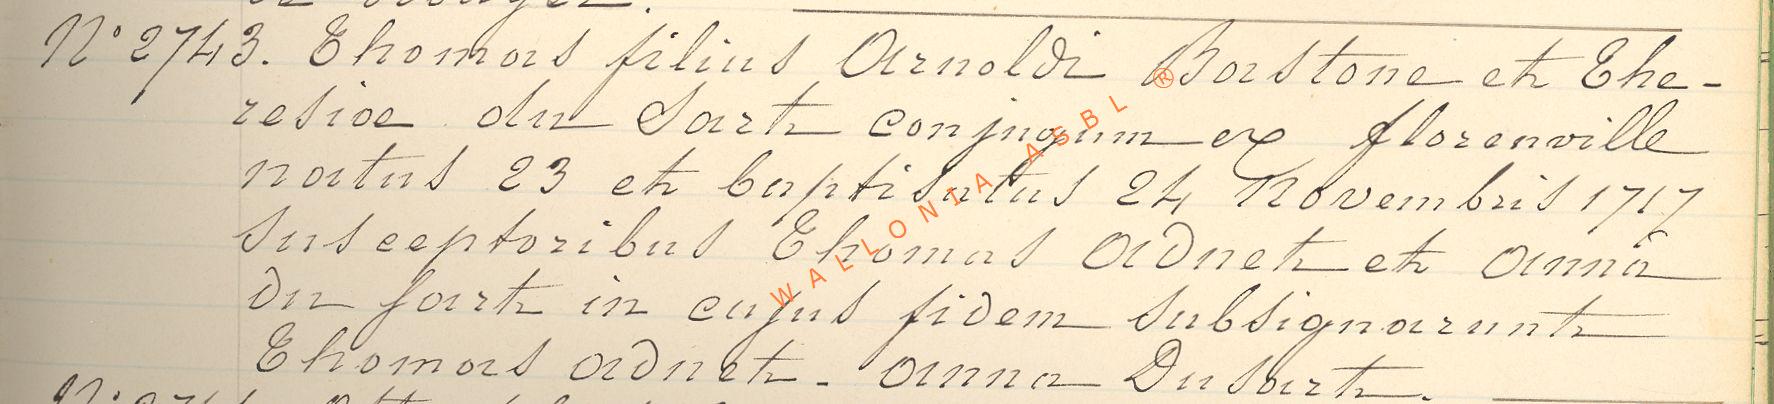 N° 2743. Thomas filius Arnoldi Bastone et The-
resiae du Sart conjugum ex florenville
natus 23 et baptisatus 24 Novembris 1717
susceptoribus Thomas Adnet et Anna
du fart in cujus fidem subsignarunt
Thomas Adnet - Anna Dusart.
WALLONIA ASBL ®